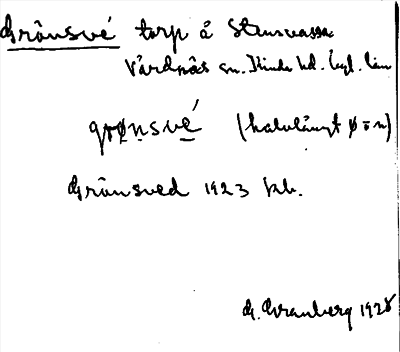 Grönsvé torp å Stensvassa
Vårdnäs sn. Kinda hd. Ögl. län
grønsvé (halvlångt ø o n)
Grönsved 1923 jkb.
G. Granberg 1928